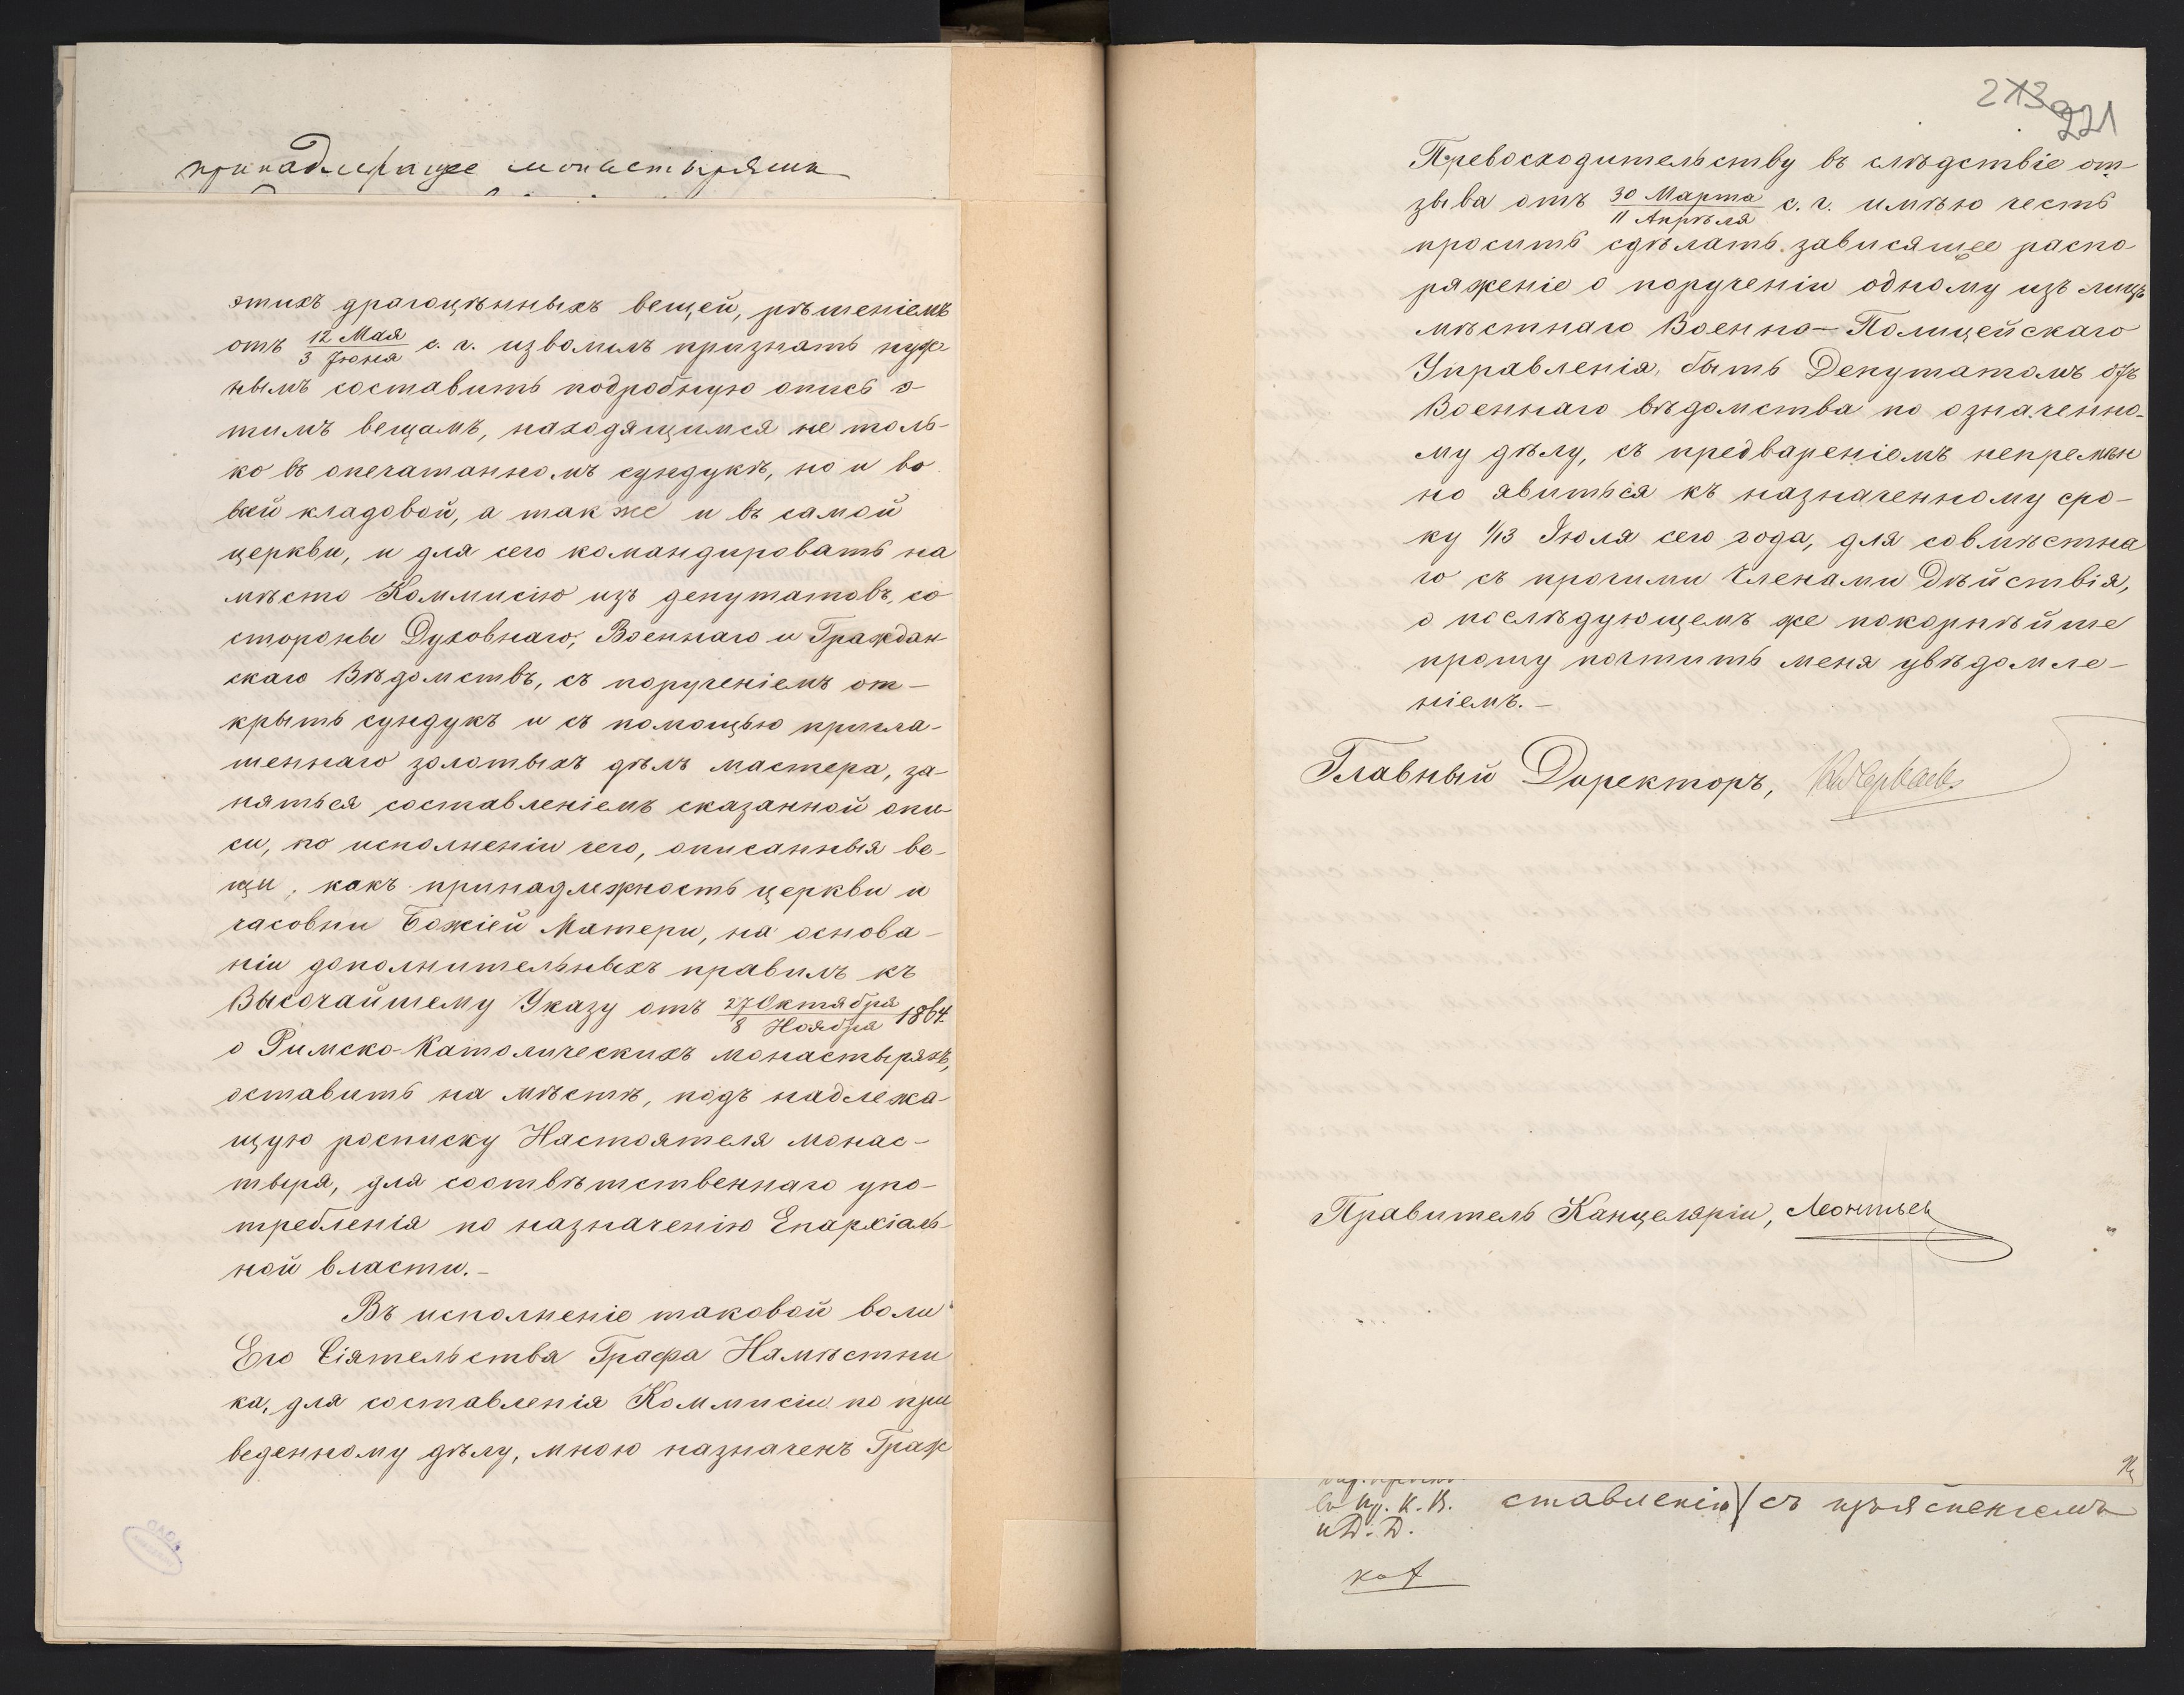 принадлежащее монастырямъ
этихъ драгоцѣнныхъ вещей, рѣшеніемъ
отъ 12 Мая / 3 Іюня с. г. изволилъ признать нуж-
нымъ составить подробную опись э-
тимъ вещамъ, находящимся не толь-
ко въ опечатанномъ сундукѣ, но и во
всей кладовой, а так же и въ самой
церкви, и для сего командировать на
мѣсто Коммисію изъ депутатовъ, со
стороны Духовнаго, Военнаго и Граждан
скаго Вѣдомствъ, съ порученіемъ от-
крыть сундукъ и съ помощью пригла-
шеннаго золотыхъ дѣлъ мастера, за-
няться составленіемъ сказанной опи-
си, по исполненіи чего, описанныя ве-
щи, какъ принадлежность церкви и
часовни Божіей Матери, на основа-
ніи дополнительныхъ правилъ къ
Высочайшему Указу отъ 27 Октября / 8 Ноября 1864
о Римско-Католическихъ монастыряхъ,
оставить на мѣстѣ, подъ надлежа-
щую росписку Настоятеля монас-
тыря, для соотвѣтственнаго упо-
требленія по назначенію Епархіаль-
ной власти.-
Въ исполненіе таковой воли
Его Сіятельства Графа Намѣстни
ка, для составленія Коммисіи по при
веденному дѣлу, мною назначенъ Граж
221
Превосходительству въ слѣдствіе от-
зыва отъ 30 Марта / 11 Апрѣля с. г. имѣю честь
просить сдѣлать зависящее распо-
ряженіе о порученіи одному изъ лицъ
мѣстнаго Военно-Полицейскаго
Управленія, быть Депутатомъ отъ
Военнаго вѣдомства по означенно-
му дѣлу, съ предвареніемъ непремѣн
но явиться къ назначенному сро-
ку 1/13 Іюля сего года, для совмѣстна
го съ прочими Членами Дѣйствія,
о послѣдующемъ же покорнѣйше
прошу почтить меня увѣдомле-
ніемъ.-
Главный Директоръ,
Правитель Канцеляріи, Леонтьев
К. В. ставленію съ изъясненіемъ
и Д. Д.